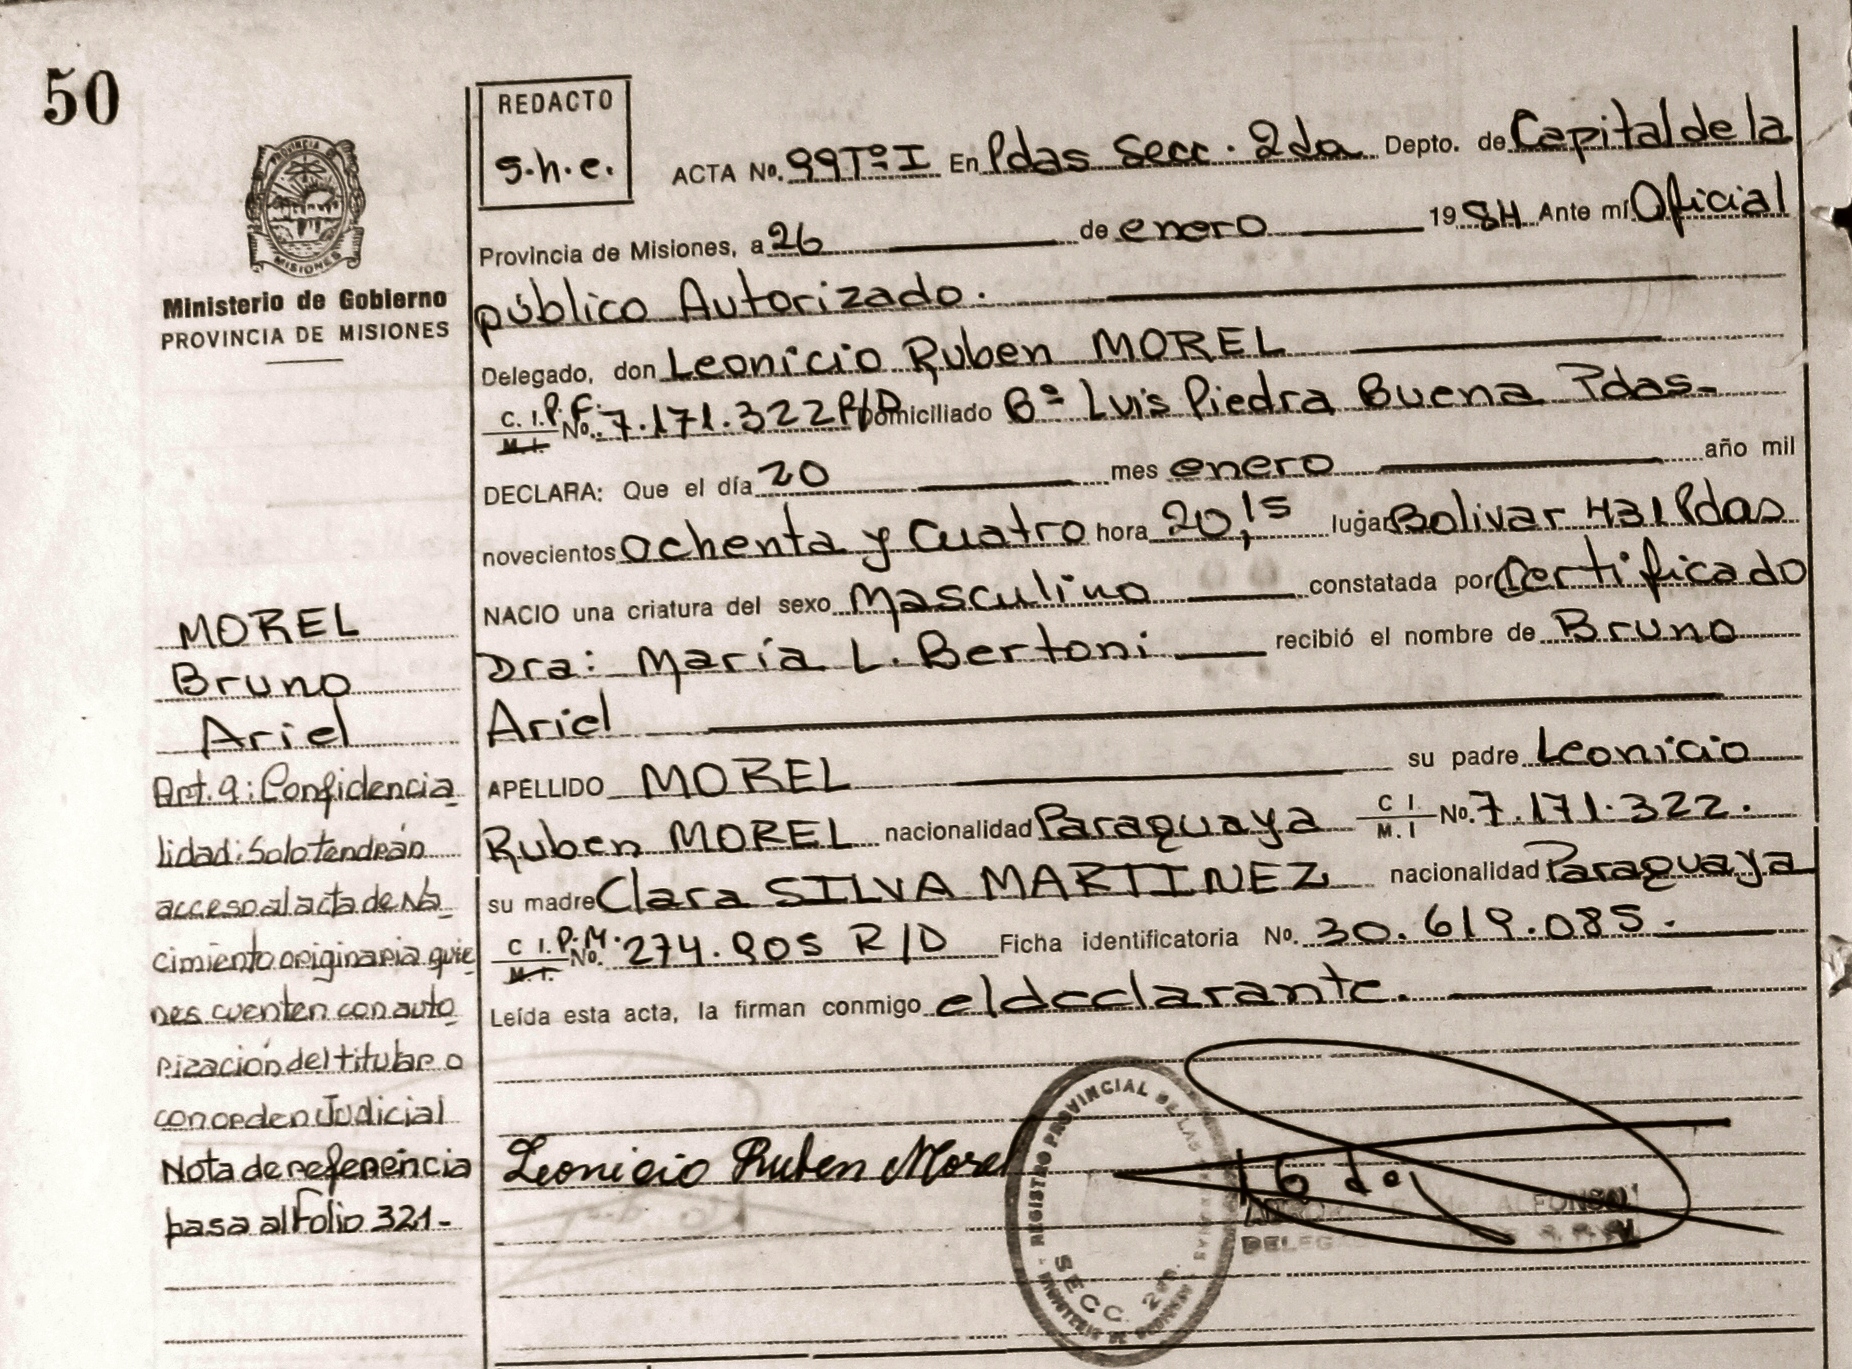 50
REDACTO
s.h.e.
PROVINCIA DE
MISIONES
Ministerio de Gobierno
PROVINCIA DE MISIONES
ACTA No. 99 Tº I En Pdas Secc. 2da Depto. de Capital de la
Provincia de Misiones, a 26 de enero 1984 Ante mí Oficial
público Autorizado.
Delegado, don Leonicio Ruben MOREL
C. I. P. F. M. I. No. 7.171.322 R/D Domiciliado Bº Luis Piedra Buena Pdas-
DECLARA: Que el día 20 mes enero año mil
novecientos ochenta y Cuatro hora 20,15 lugar Bolivar 431 Pdas
NACIO una criatura del sexo Masculino constatada por Certificado
Dra: María L. Bertoni recibió el nombre de Bruno
Ariel
APELLIDO MOREL su padre Leonicio
Ruben MOREL nacionalidad Paraguaya C I M. I No. 7.171.322.
su madre Clara SILVA MARTINEZ nacionalidad Paraguaya
C I. P. M. M. I. No. 274.905 R/D Ficha identificatoria No. 30.619.085.
Leída esta acta, la firman conmigo el declarante.
MOREL
Bruno
Ariel
Art. 9: Confidencia
lidad: Solo tendrán
acceso al acta de Na
cimiento originaria quie
nes cuenten con auto
rización del titular o
con orden Judicial
Nota de referencia
pasa al Folio 321-
Leonicio Ruben Morel
REGISTRO PROVINCIAL DE LAS
SECC 2da.
ALFONSO